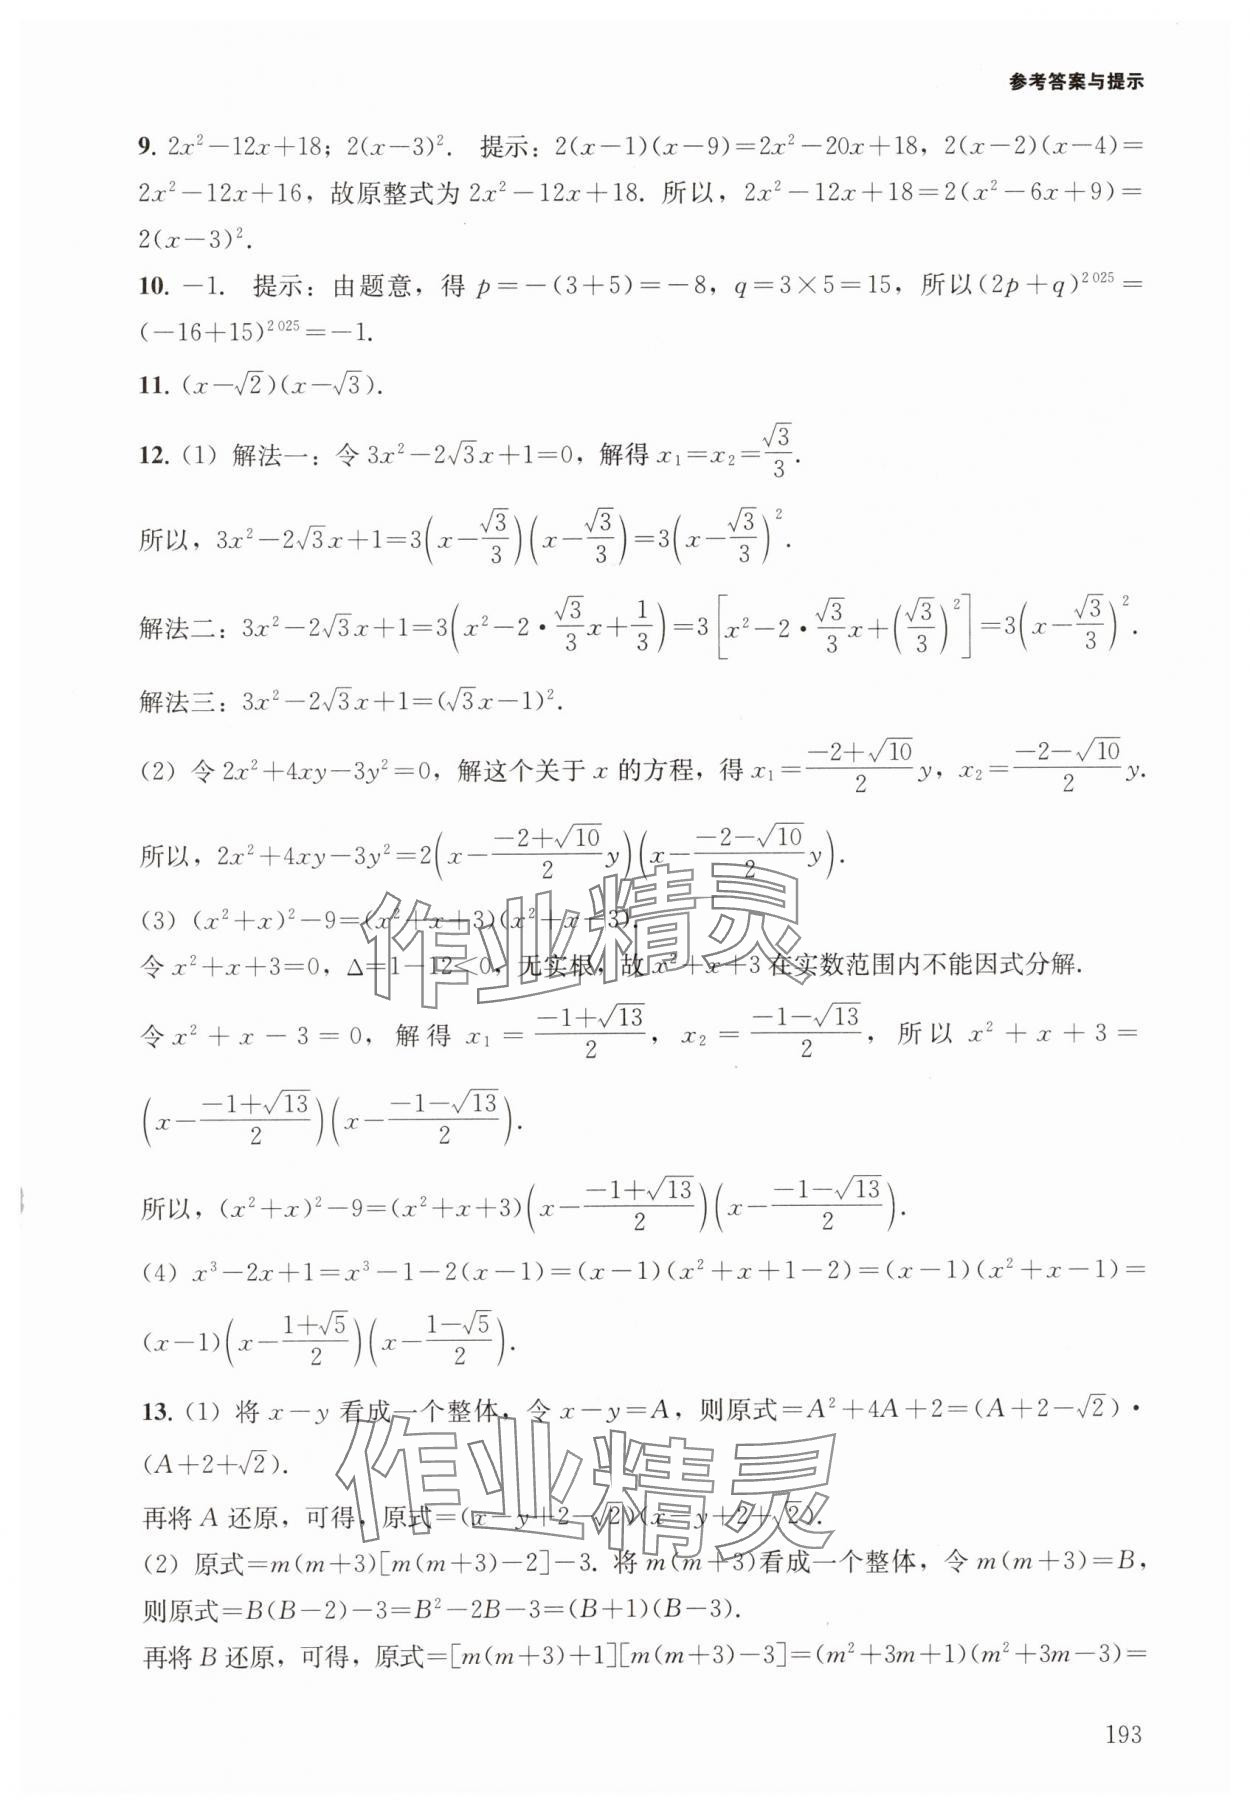 参考答案与提示
9. 2x²−12x+18；2(x−3)². 提示：2(x−1)(x−9)=2x²−20x+18，2(x−2)(x−4)=
2x²−12x+16，故原整式为 2x²−12x+18. 所以，2x²−12x+18=2(x²−6x+9)=
2(x−3)².
10. −1. 提示：由题意，得 p=−(3+5)=−8，q=3×5=15，所以(2p+q)²⁰²⁵=
(−16+15)²⁰²⁵=−1.
11. (x−√2)(x−√3).
12. (1) 解法一：令 3x²−2√3x+1=0，解得 x₁=x₂=√3/3.
所以，3x²−2√3x+1=3(x−√3/3)(x−√3/3)=3(x−√3/3)².
解法二：3x²−2√3x+1=3(x²−2·√3/3x+1/3)=3[x²−2·√3/3x+(√3/3)²]=3(x−√3/3)².
解法三：3x²−2√3x+1=(√3x−1)².
(2) 令 2x²+4xy−3y²=0，解这个关于 x 的方程，得 x₁=(−2+√10)/2 y，x₂=(−2−√10)/2 y.
所以，2x²+4xy−3y²=2(x−(−2+√10)/2 y)(x−(−2−√10)/2 y).
(3) (x²+x)²−9=(x²+x+3)(x²+x−3).
令 x²+x+3=0，Δ=1−12<0，无实根，故 x²+x+3 在实数范围内不能因式分解.
令 x²+x−3=0，解得 x₁=(−1+√13)/2，x₂=(−1−√13)/2，所以 x²+x+3=
(x−(−1+√13)/2)(x−(−1−√13)/2).
所以，(x²+x)²−9=(x²+x+3)(x−(−1+√13)/2)(x−(−1−√13)/2).
(4) x³−2x+1=x³−1−2(x−1)=(x−1)(x²+x+1−2)=(x−1)(x²+x−1)=
(x−1)(x−(1+√5)/2)(x−(1−√5)/2).
13. (1) 将 x−y 看成一个整体，令 x−y=A，则原式=A²+4A+2=(A+2−√2)·
(A+2+√2).
再将 A 还原，可得，原式=(x−y+2−√2)(x−y+2+√2).
(2) 原式=m(m+3)[m(m+3)−2]−3. 将 m(m+3)看成一个整体，令 m(m+3)=B，
则原式=B(B−2)−3=B²−2B−3=(B+1)(B−3).
再将 B 还原，可得，原式=[m(m+3)+1][m(m+3)−3]=(m²+3m+1)(m²+3m−3)=
193
作业精灵
作业精灵